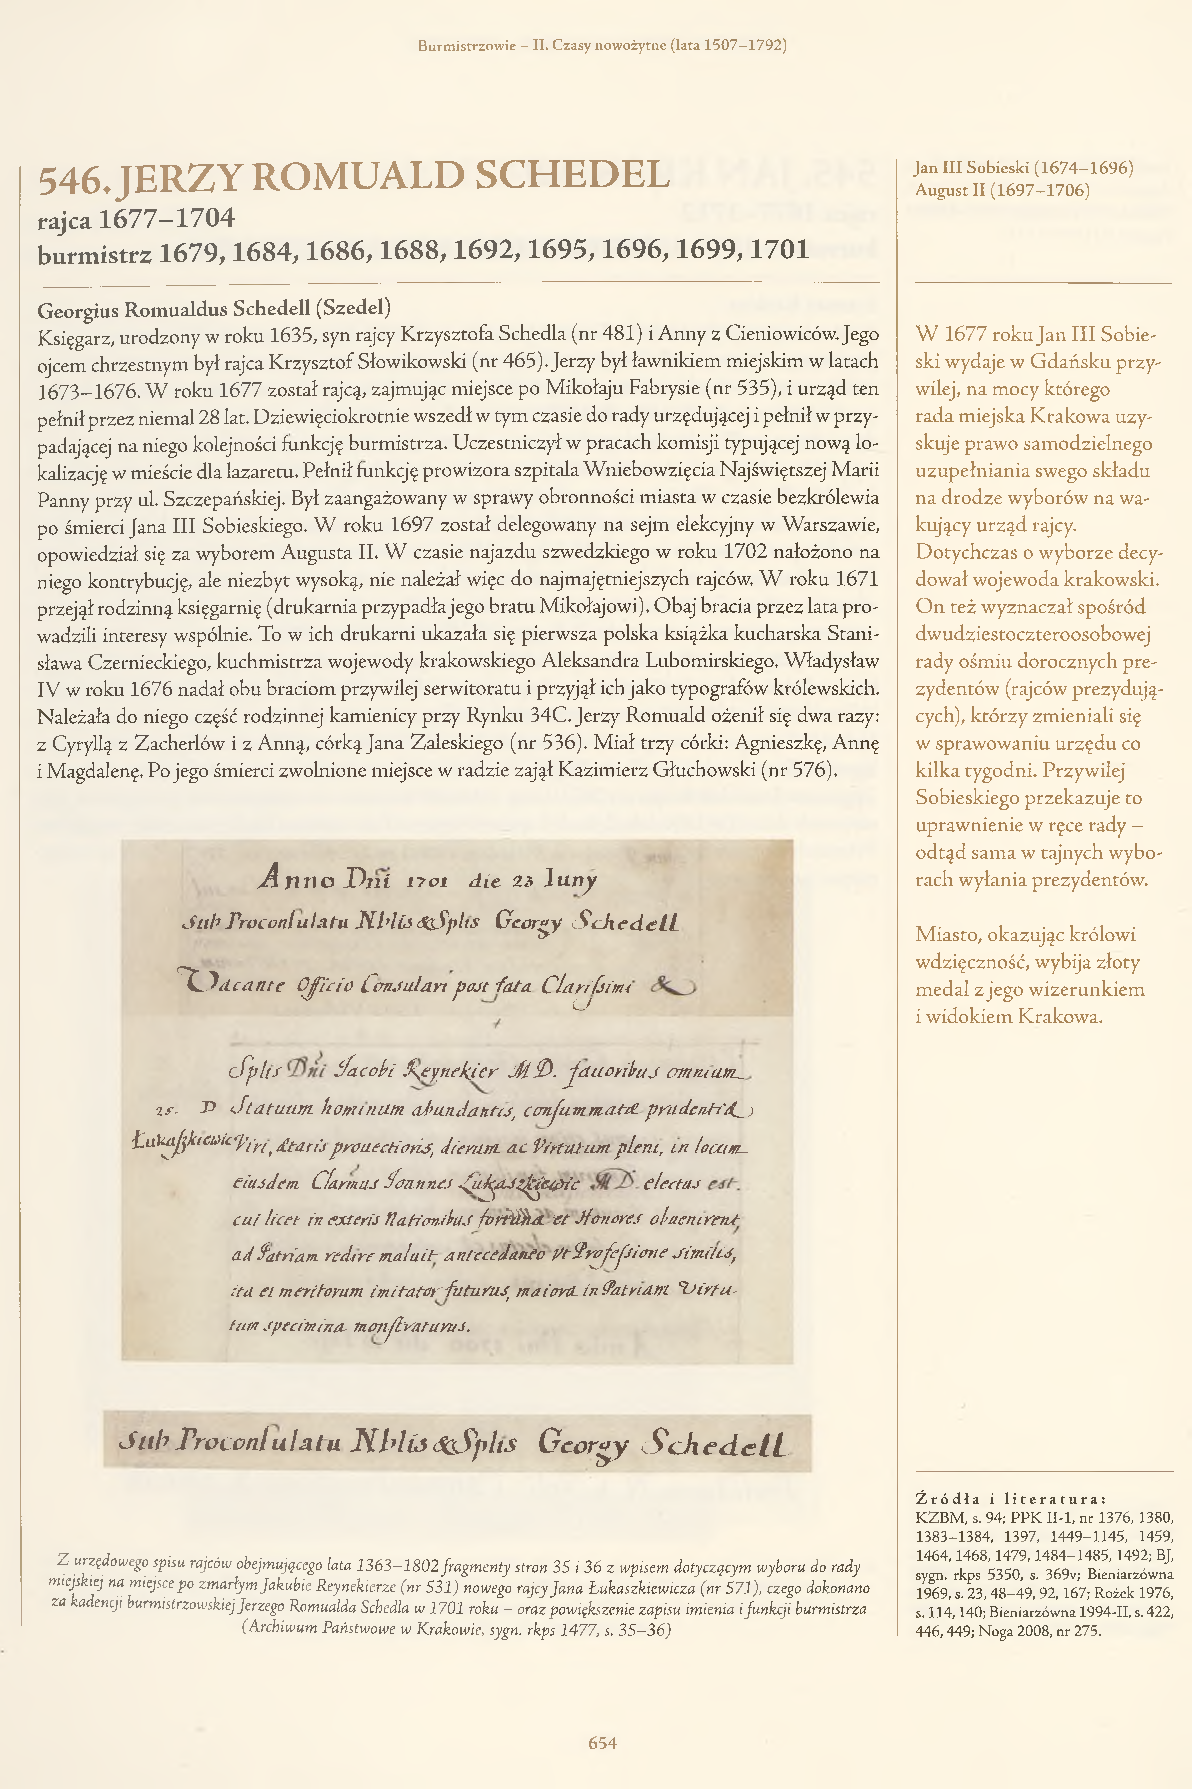 Burmistrzowie – II. Czasy nowożytne (lata 1507–1792)
546. JERZY ROMUALD SCHEDEL
rajca 1677–1704
burmistrz 1679, 1684, 1686, 1688, 1692, 1695, 1696, 1699, 1701
Georgius Romualdus Schedell (Szedel)
Księgarz, urodzony w roku 1635, syn rajcy Krzysztofa Schedla (nr 481) i Anny z Cieniowiców. Jego
ojcem chrzestnym był rajca Krzysztof Słowikowski (nr 465). Jerzy był ławnikiem miejskim w latach
1673–1676. W roku 1677 został rajcą, zajmując miejsce po Mikołaju Fabrysie (nr 535), i urząd ten
pełnił przez niemal 28 lat. Dziewięciokrotnie wszedł w tym czasie do rady urzędującej i pełnił w przy-
padającej na niego kolejności funkcję burmistrza. Uczestniczył w pracach komisji typującej nową lo-
kalizację w mieście dla lazaretu. Pełnił funkcję prowizora szpitala Wniebowzięcia Najświętszej Marii
Panny przy ul. Szczepańskiej. Był zaangażowany w sprawy obronności miasta w czasie bezkrólewia
po śmierci Jana III Sobieskiego. W roku 1697 został delegowany na sejm elekcyjny w Warszawie,
opowiedział się za wyborem Augusta II. W czasie najazdu szwedzkiego w roku 1702 nałożono na
niego kontrybucję, ale niezbyt wysoką, nie należał więc do najmajętniejszych rajców. W roku 1671
przejął rodzinną księgarnię (drukarnia przypadła jego bratu Mikołajowi). Obaj bracia przez lata pro-
wadzili interesy wspólnie. To w ich drukarni ukazała się pierwsza polska książka kucharska Stani-
sława Czernieckiego, kuchmistrza wojewody krakowskiego Aleksandra Lubomirskiego. Władysław
IV w roku 1676 nadał obu braciom przywilej serwitoratu i przyjął ich jako typografów królewskich.
Należała do niego część rodzinnej kamienicy przy Rynku 34C. Jerzy Romuald ożenił się dwa razy:
z Cyryllą z Zacherlów i z Anną, córką Jana Zaleskiego (nr 536). Miał trzy córki: Agnieszkę, Annę
i Magdalenę. Po jego śmierci zwolnione miejsce w radzie zajął Kazimierz Głuchowski (nr 576).
Anno Dni 1701 die 23 Iuny
Sub Proconsulatu Nblis & Splis Georgy Schedell
Vacante Officio Consulari post fata Clarissimi &
Splis Dni Iacobi Reynekier M D. fauoribus omnium
25. D Statuum hominum abundantis, consummatæ prudentiæ
Łukaszkiewic Viri, ætatis prouectioris, dierum ac Virtutum pleni, in locum
eiusdem Clarmus Ioannes Łukaszkiewic M D. electus est.
cui licet in exteris Nationibus fortuna et Honores obuenirent,
ad Patriam redire maluit, antecedaneo vt Professione similis,
ita et meritorum imitator futurus, maiora in Patriam Virtu-
tum specimina monstraturus.
Sub Proconsulatu Nblis & Splis Georgy Schedell
Z urzędowego spisu rajców obejmującego lata 1363–1802 fragmenty stron 35 i 36 z wpisem dotyczącym wyboru do rady
miejskiej na miejsce po zmarłym Jakubie Reynekierze (nr 531) nowego rajcy Jana Łukaszkiewicza (nr 571), czego dokonano
za kadencji burmistrzowskiej Jerzego Romualda Schedla w 1701 roku – oraz powiększenie zapisu imienia i funkcji burmistrza
(Archiwum Państwowe w Krakowie, sygn. rkps 1477, s. 35–36)
Jan III Sobieski (1674–1696)
August II (1697–1706)
W 1677 roku Jan III Sobie-
ski wydaje w Gdańsku przy-
wilej, na mocy którego
rada miejska Krakowa uzy-
skuje prawo samodzielnego
uzupełniania swego składu
na drodze wyborów na wa-
kujący urząd rajcy.
Dotychczas o wyborze decy-
dował wojewoda krakowski.
On też wyznaczał spośród
dwudziestoczteroosobowej
rady ośmiu dorocznych pre-
zydentów (rajców prezydują-
cych), którzy zmieniali się
w sprawowaniu urzędu co
kilka tygodni. Przywilej
Sobieskiego przekazuje to
uprawnienie w ręce rady –
odtąd sama w tajnych wybo-
rach wyłania prezydentów.
Miasto, okazując królowi
wdzięczność, wybija złoty
medal z jego wizerunkiem
i widokiem Krakowa.
Źródła i literatura:
KZBM, s. 94; PPK II-1, nr 1376, 1380,
1383–1384, 1397, 1449–1145, 1459,
1464, 1468, 1479, 1484–1485, 1492; BJ,
sygn. rkps 5350, s. 369v; Bieniarzówna
1969, s. 23, 48–49, 92, 167; Rożek 1976,
s. 114, 140; Bieniarzówna 1994-II, s. 422,
446, 449; Noga 2008, nr 275.
654